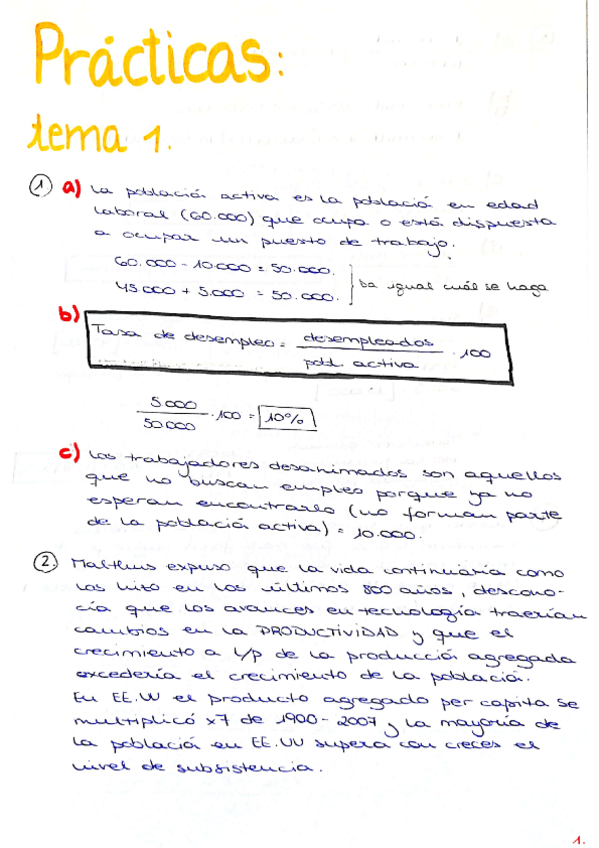 Prácticas:
tema 1.
1 a) La población activa es la población en edad
laboral (60.000) que ocupa o está dispuesta
a ocupar un puesto de trabajo.
60.000 - 10.000 = 50.000.
45.000 + 5.000 = 50.000.
da igual cuál se haga
b)
Tasa de desempleo = desempleados / pobl. activa · 100
5.000 / 50.000 · 100 = 10%
c) Los trabajadores desanimados son aquellos
que no buscan empleo porque ya no
esperan encontrarlo (no forman parte
de la población activa) = 10.000.
2. Malthus expuso que la vida continuaría como
los hizo en los últimos 800 años, descono-
cía que los avances en tecnología traerían
cambios en la PRODUCTIVIDAD y que el
crecimiento a L/p de la producción agregada
excedería el crecimiento de la población.
En EE.UU el producto agregado per capita se
multiplicó x7 de 1900-2007 y la mayoría de
la población en EE.UU supera con creces el
nivel de subsistencia.
1.